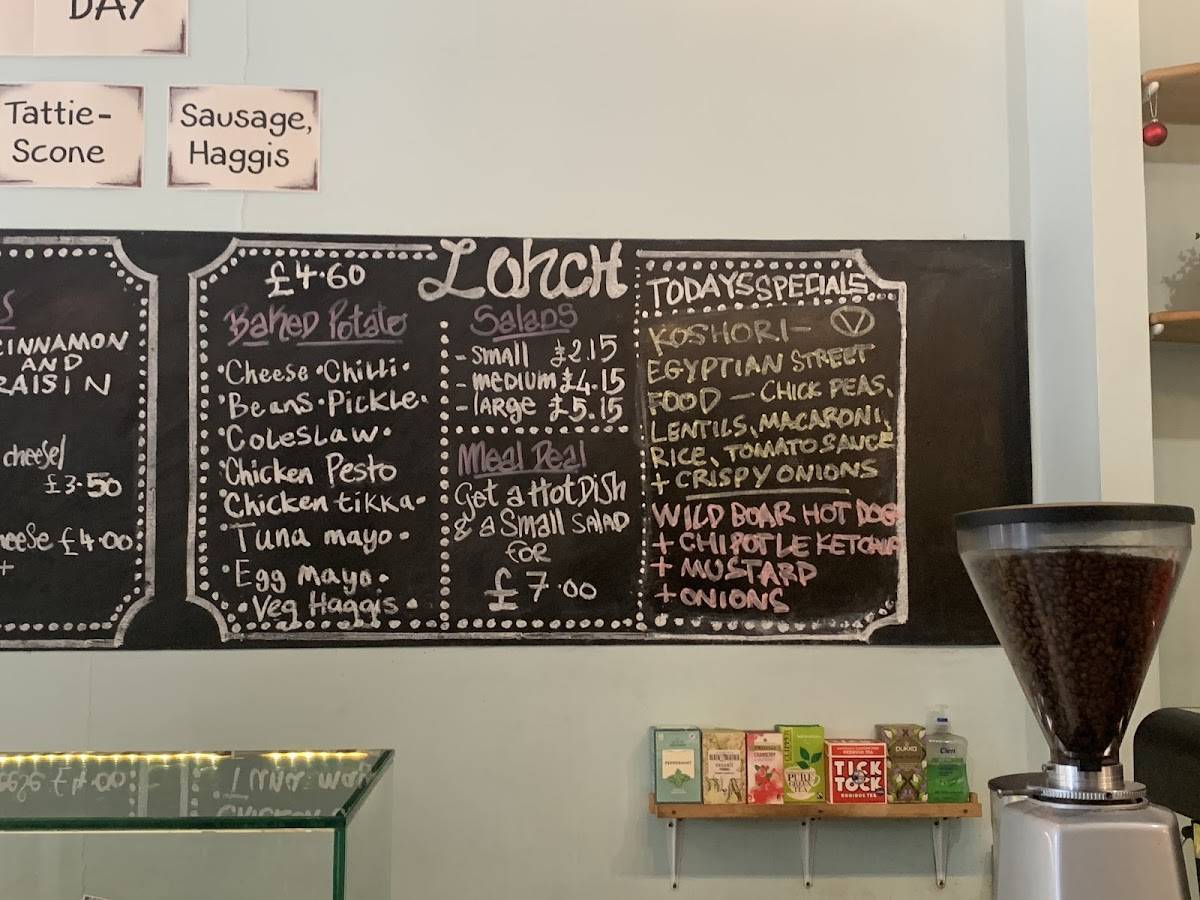 DAY
Tattie-
Scone
Sausage,
Haggis
S
CINNAMON
AND
RAISIN
cheese/
£3.50
heese £4.00
+
LUNCH
£4.60
Baked Potato
•Cheese •Chilli•
•Beans •Pickle•
•Coleslaw•
•Chicken Pesto
•Chicken tikka•
•Tuna mayo•
•Egg mayo•
•Veg Haggis•
Salads
- Small £2.15
- medium £4.15
- large £5.15
Meal Deal
Get a HOT DISH
& a Small SALAD
for
£7.00
TODAYS SPECIALS
KOSHORI – V
EGYPTIAN STREET
FOOD – CHICK PEAS,
LENTILS, MACARONI,
RICE, TOMATO SAUCE
+ CRISPY ONIONS
WILD BOAR HOT DOG
+ CHIPOTLE KETCHUP
+ MUSTARD
+ ONIONS
PEPPERMINT
CRANBERRY
CLIPPER
PURE
GREEN
TEA
TICK
TOCK
ROOIBOS TEA
pukka